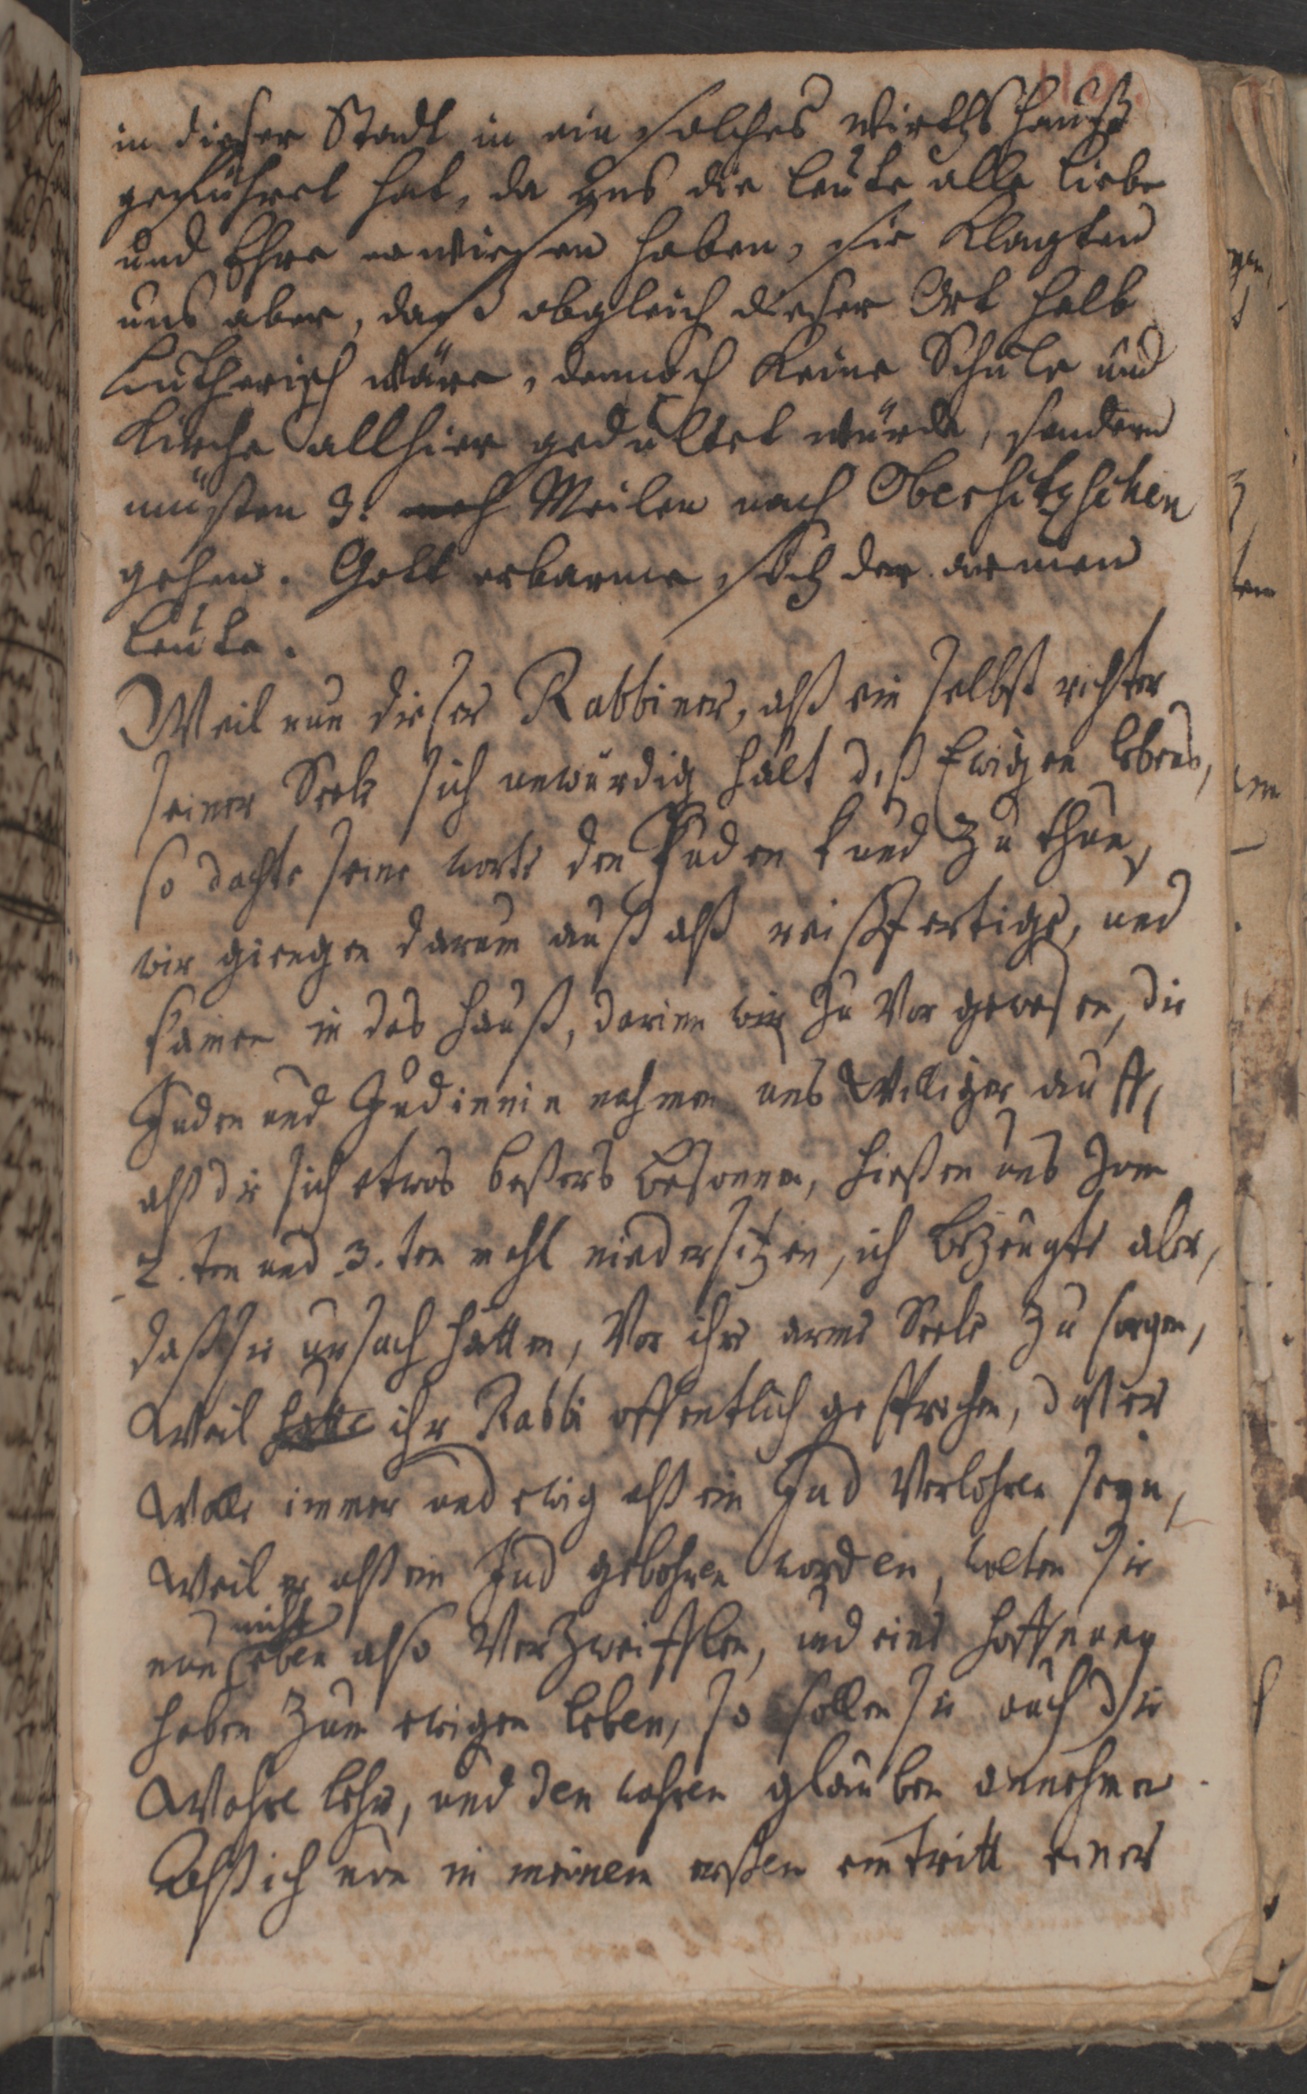 110.
in dießer Stadt in ein solches Wirthshauß
geführet hat, da uns die Leute alle Liebe
und Ehre erwießen haben, sie klagten
uns aber, daß obgleich dießer Ort halb
Lutherisch wäre, dennoch keine Schule und
Kirche allhier gedultet würde, sondern
müsten 3. noch Meilen nach Obersitzschen
gehen. Gott erbarme sich der armen
Leute.
Weil nun dieser Rabbiner, alß ein selbst richter
seiner Seele sich unwürdig hält deß Ewigen lebens,
so dachte seine worte den Juden kund zu thun,
wir giengen darum auß alß reißfertige, und
kamen in das Hauß, darinn wir zu vor gewesen, die
Juden und Judinnin nahmen uns Williger auff,
alß die sich etwas beßers besonnen, hießen uns zum
2.ten und 3.ten mahl niedersitzen, ich bezeugte aber,
daß sie ursach hätten, Vor ihre arme Seele zu sorgen,
Weil hätte ihr Rabbi offentlich gesprochen, daß er
Wolle immer und ewig alß ein Jud Verlohren seyn,
Weil er alß ein Jud gebohren worden, wolten sie
nicht
nun eben also Verzweifflen, und eine hoffnung
haben zum ewigen leben, so sollen sie auch die
Wahre lehr, und den wahren glauben annehmen
Alß ich nun in meinem ersten eintritt eines